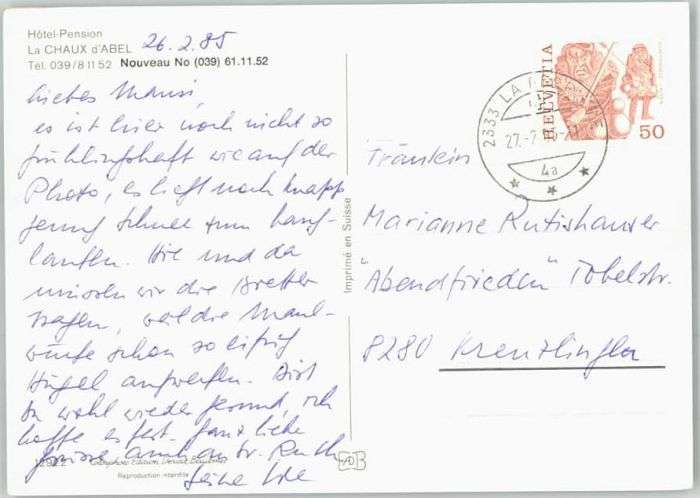 Hôtel-Pension
La CHAUX d'ABEL
Tél. 039/8 11 52 Nouveau No (039) 61.11.52
26.2.85
Liebes Mausi,
es ist hier noch nicht so
frühlingshaft wie auf der
Photo, es liegt noch knapp
genug Schnee zum Lang-
laufen. Hie und da
müssen wir die Bretter
tragen, weil die Maul-
würfe schon so eifrig
Hügel aufwerfen. Bist
Du wohl wieder gesund, ich
hoffe es fest. Ganz liebe
Grüsse auch an Sr. Ruth
Deine
Reproduction interdite
Imprimé en Suisse
HELVETIA
50
2333 LA
27.-2.
4a
Fräulein
Marianne Rutishauser
"Abendfrieden" Tobelstr.
8280 Kreuzlingen